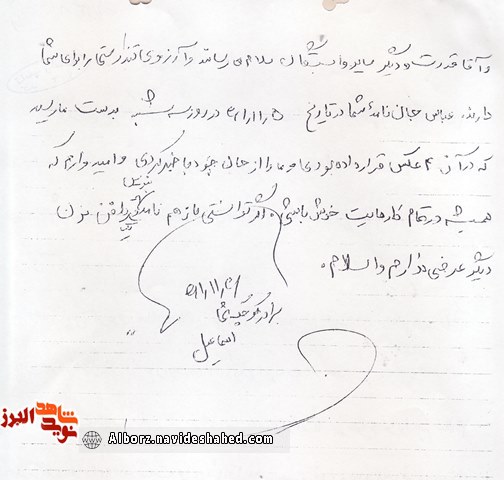 و آقا قدرت و دیگر سایر وابستگان سلام میرسانند و آرزوی تندرستی شما را برای شما
دارند. عباس جان نامهٔ شما در تاریخ ۵/۱۱/ در روز سه شنبه بدست ما رسید
که در آن ۴ عکس قرار داده بودی و ما را از حال خود با خبر کردی و امیدوارم که
همیشه در تمام کارهایت خوش باشی. اگر توانستی باز هم نامه تلفن بزن
دیگر عرضی ندارم والسلام.
برادر کوچک شما
اسماعیل
نوید شاهد البرز
Alborz.navideshahed.com